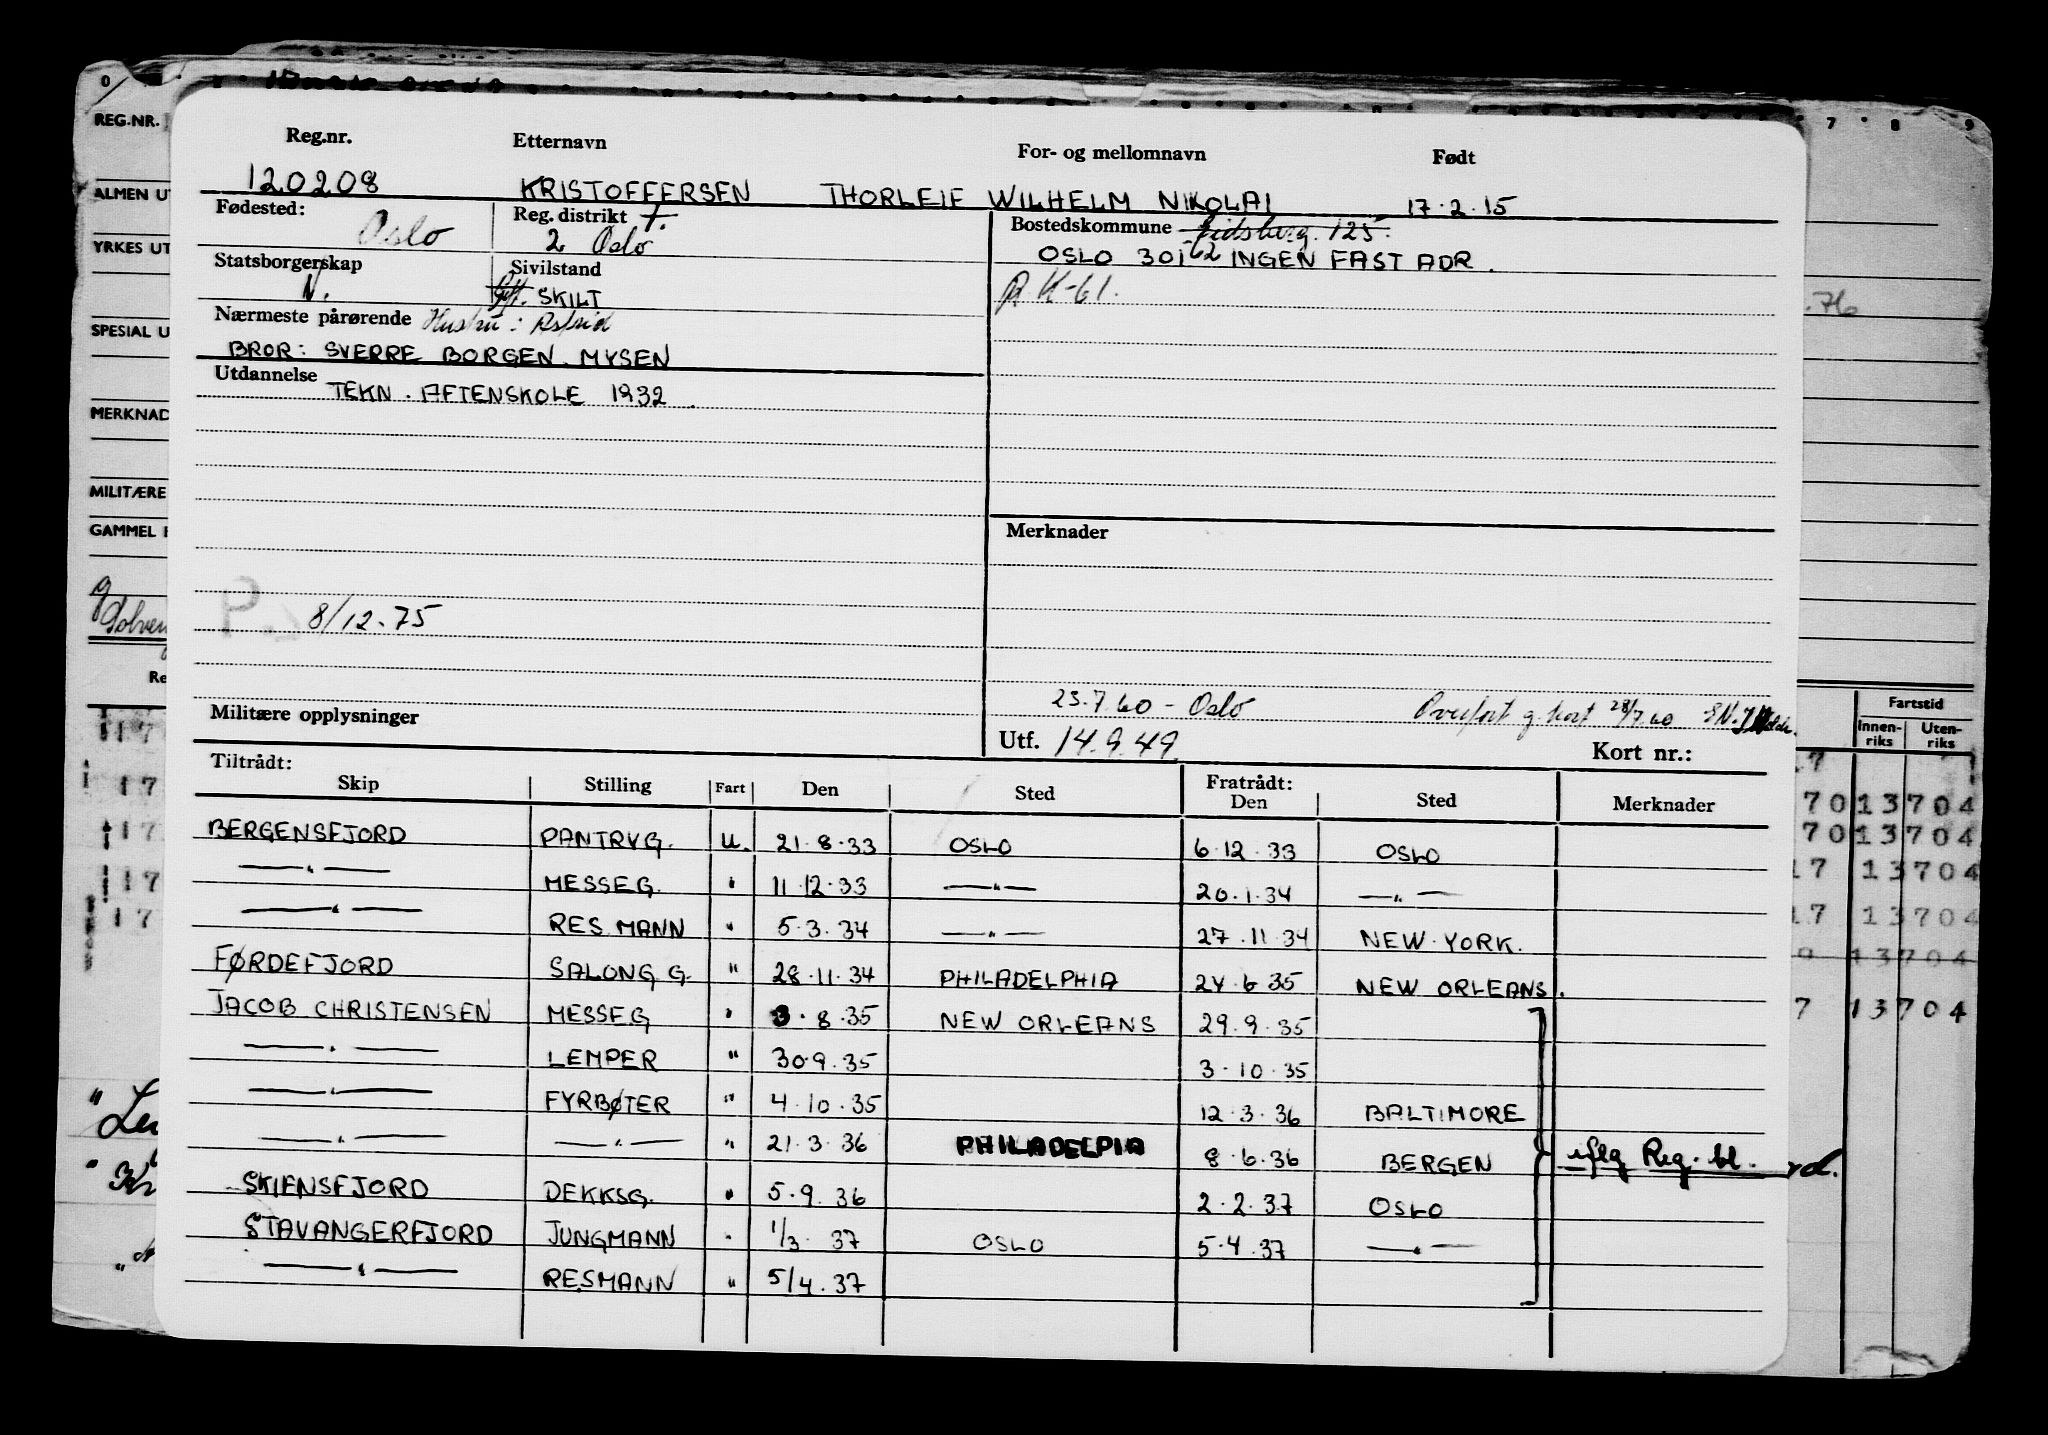 REG.NR.
ALMEN UT
YRKES UT
SPESIAL U
MERKNAD
MILITÆRE
GAMMEL
Reg.nr. Etternavn For- og mellomnavn Født
120208 KRISTOFFERSEN THORLEIF WILHELM NIKOLAI 17.2.15
Fødested: Oslo Reg. distrikt 2 Oslo Bostedskommune Eidsberg. 125.
OSLO 301 62 INGEN FAST ADR.
Statsborgerskap N. Sivilstand Gift. SKILT
R K-61.
Nærmeste pårørende Hustru: Astrid
BROR: SVERRE BORGEN. MYSEN
Utdannelse TEKN. AFTENSKOLE 1932.
Merknader
8/12-75
23.7.60 - Oslo Overført g. kort 28/7.60
Militære opplysninger Utf. 14.9.49. Kort nr.:
Tiltrådt: Fratrådt:
Skip Stilling Fart Den Sted Den Sted Merknader
BERGENSFJORD PANTRYG. U. 21.8.33 OSLO 6.12.33 OSLO
—"— MESSEG. " 11.12.33 —"— 20.1.34 —"—
—"— RES MANN " 5.3.34 —"— 27.11.34 NEW YORK.
FØRDEFJORD SALONG G. " 28.11.34 PHILADELPHIA 24.6.35 NEW ORLEANS.
JACOB CHRISTENSEN MESSEG " 3.8.35 NEW ORLEANS 29.9.35
—"— LEMPER " 30.9.35 3.10.35
—"— FYRBØTER " 4.10.35 12.3.36 BALTIMORE
—"— —"— " 21.3.36 PHILADELPIA 8.6.36 BERGEN iflg Reg. bl.
SKIENSFJORD DEKKSG. " 5.9.36 2.2.37 OSLO
STAVANGERFJORD JUNGMANN " 1/3 37 OSLO 5.4.37 —"—
—"— RESMANN " 5/4.37
Fartstid
Innen-riks Uten-riks
70 13704
70 13704
17 13704
17 13704
13704
7 13704